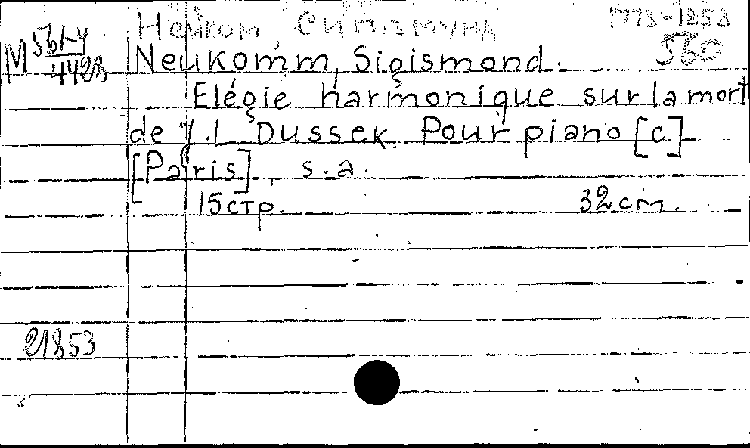 Нейком Сигизмунд 1778-1858
М 561-4/4428 560
Neukomm, Sigismond.
Elégie harmonique sur la mort
de J. L. Dussek. Pour piano [c.]
[Paris], s.a.
15 стр. 32 cm.
21853